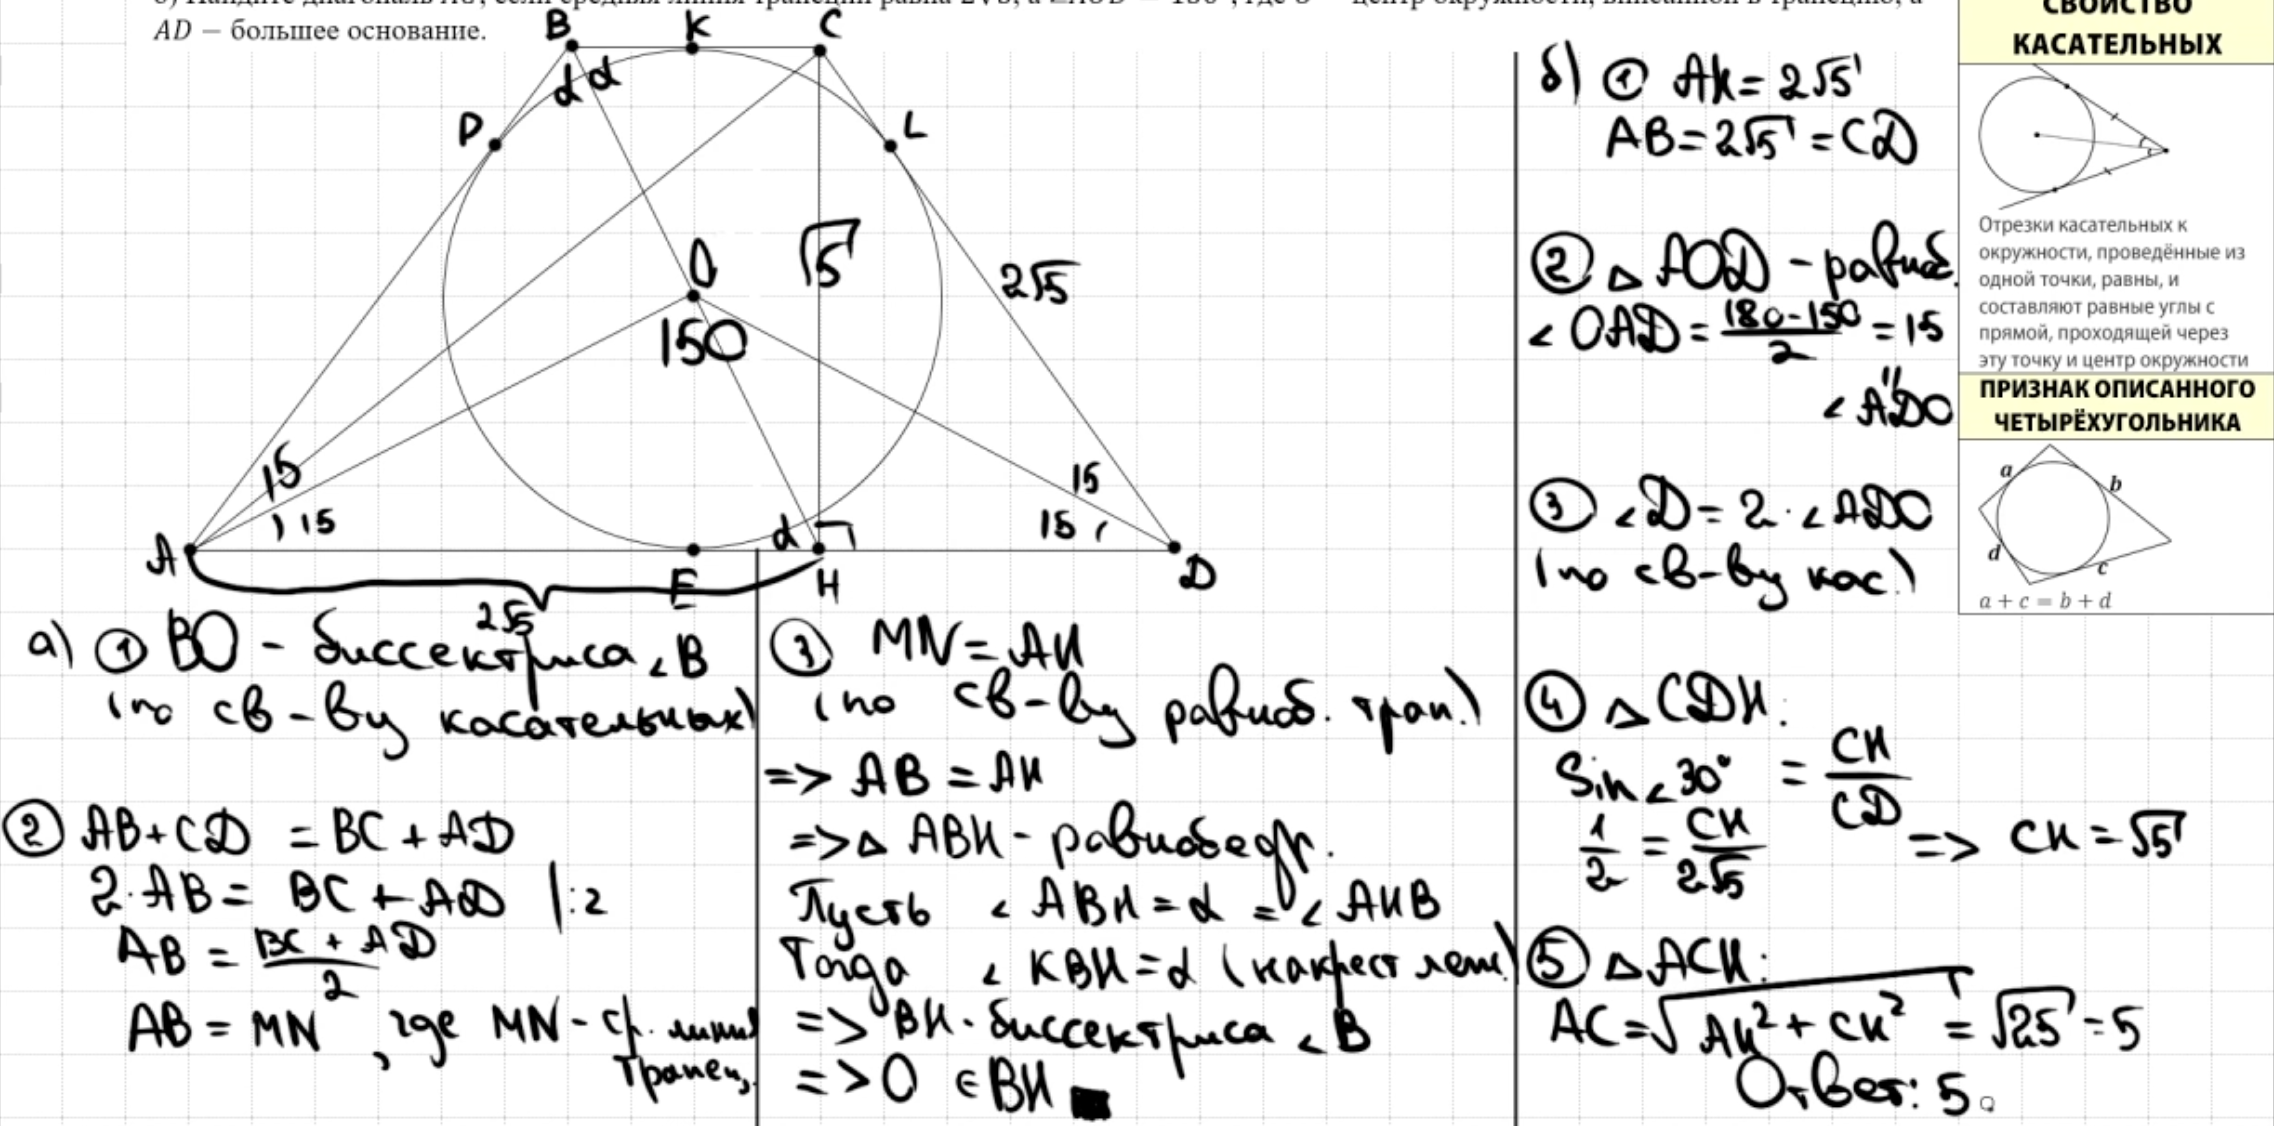 AD — большее основание.
B
K
C
d d
P
L
O
√5
2√5
150
15
15
15
15
d
A
E
H
D
2√5
а) ① BO - биссектриса ∠B
(по св-ву касательных)
② AB+CD = BC+AD
2·AB = BC + AD |:2
AB = BC + AD / 2
AB = MN, где MN - ср. линия
трапец.
③ MN = AH
(по св-ву равноб. трап.)
=> AB = AH
=> △ ABH - равнобедр.
Пусть ∠ ABH = α = ∠ AHB
Тогда ∠ KBH = α (накрест леж)
=> BH - биссектриса ∠B
=> O ∈ BH ■
б) ① AH = 2√5
AB = 2√5 = CD
② △ AOD - равноб.
∠ OAD = 180-150 / 2 = 15
"
∠ ADO
③ ∠D = 2 · ∠ADO
(по св-ву кас.)
④ △ CDH:
Sin∠30° = CH / CD
1/2 = CH / 2√5 => CH = √5
⑤ △ACH:
AC = √AH² + CH² = √25 = 5
Ответ: 5.
СВОЙСТВО
КАСАТЕЛЬНЫХ
Отрезки касательных к
окружности, проведённые из
одной точки, равны, и
составляют равные углы с
прямой, проходящей через
эту точку и центр окружности
ПРИЗНАК ОПИСАННОГО
ЧЕТЫРЁХУГОЛЬНИКА
a
b
d
c
a + c = b + d